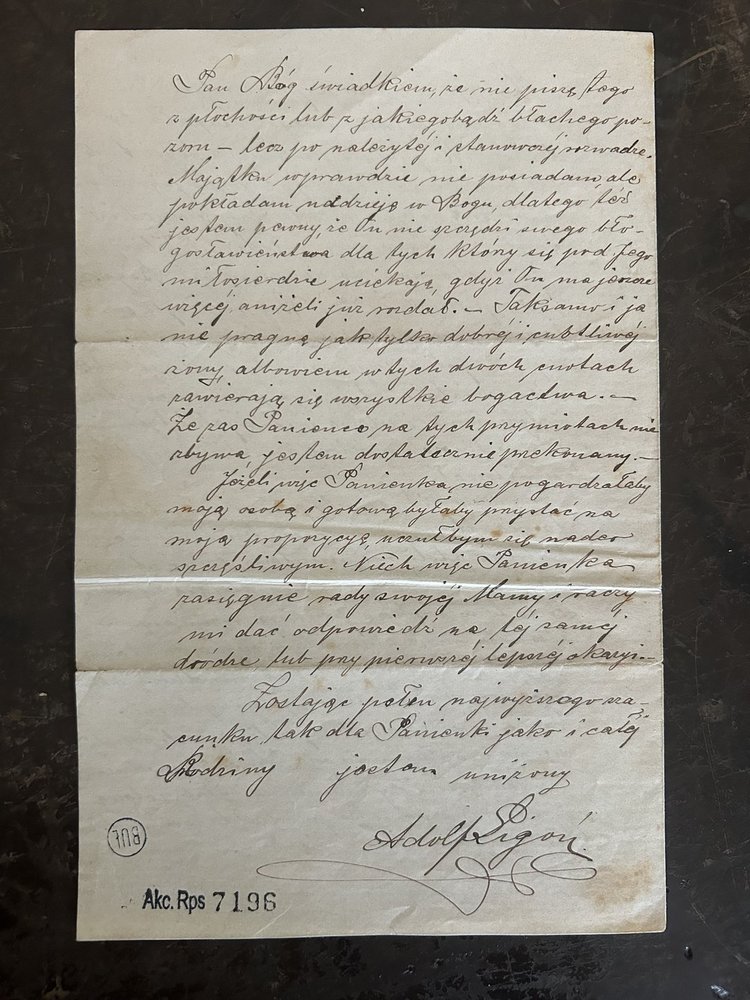 Pan Bóg świadkiem, że nie piszę tego
z płochości lub z jakiegobądź błachego po-
zoru – lecz po należytéj i stanowczéj rozwadze.
Majątku wprawdzie nie posiadam, ale
pokładam nadzieję w Bogu, dlatego téż
jestem pewny, że On nie szczędzi swego bło-
gosławieństwa dla tych który się pod Jego
miłosierdzie uciekają, gdyż On ma jeszcze
więcéj aniżeli już rozdał. – Taksamo i ja
nie pragnę jak tylko dobréj i cnotliwéj
żony, albowiem w tych dwóch cnotach
zawierają się wszystkie bogactwa. –
Że zaś Panience na tych przymiotach nie
zbywa jestem dostatecznie przekonany. –
Jeżeli więc Panienka nie pogardzałaby
moją osobą i gotową byłaby przystać na
moją propozycję, uczułbym się nader
szczęśliwym. Niech więc Panienka
zasięgnie rady swojéj Mamy i raczy
mi dać odpowiedź na téj saméj
drodze lub przy pierwszéj lepszéj okazyi. –
Zostając pełen najwyższego sza-
cunku tak dla Panienki jako i całéj
Rodziny jestem uniżony
Adolf Ligoń.
BUŁ
Akc. Rps 7196